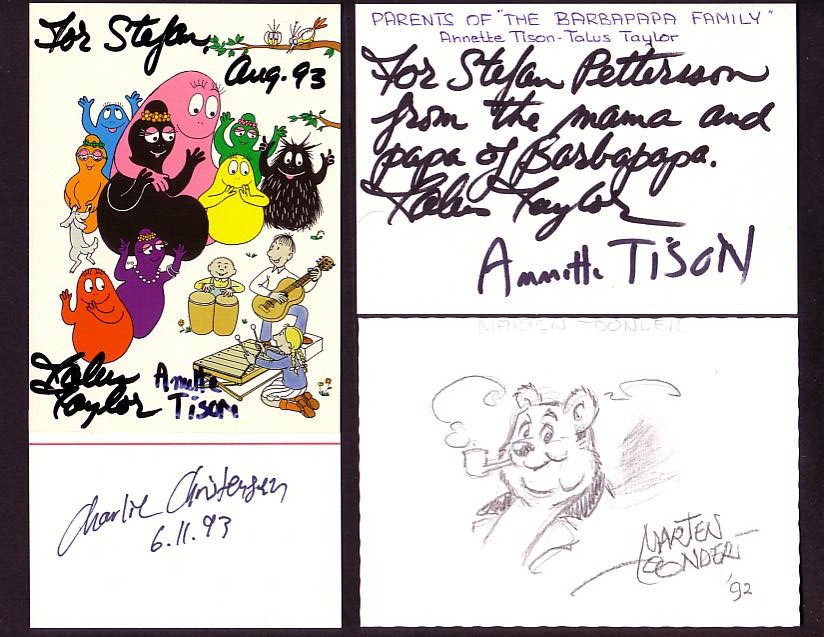 For Stefan,
Aug. 93
Talus
Taylor
Annette
Tison
Charlie Christensen
6.11.93
PARENTS OF "THE BARBAPAPA FAMILY"
Annette Tison-Talus Taylor
For Stefan Pettersson
from the mama and
papa of Barbapapa.
Talus Taylor
Annette TISON
MARTEN TOONDER
MARTEN
TOONDER
'92